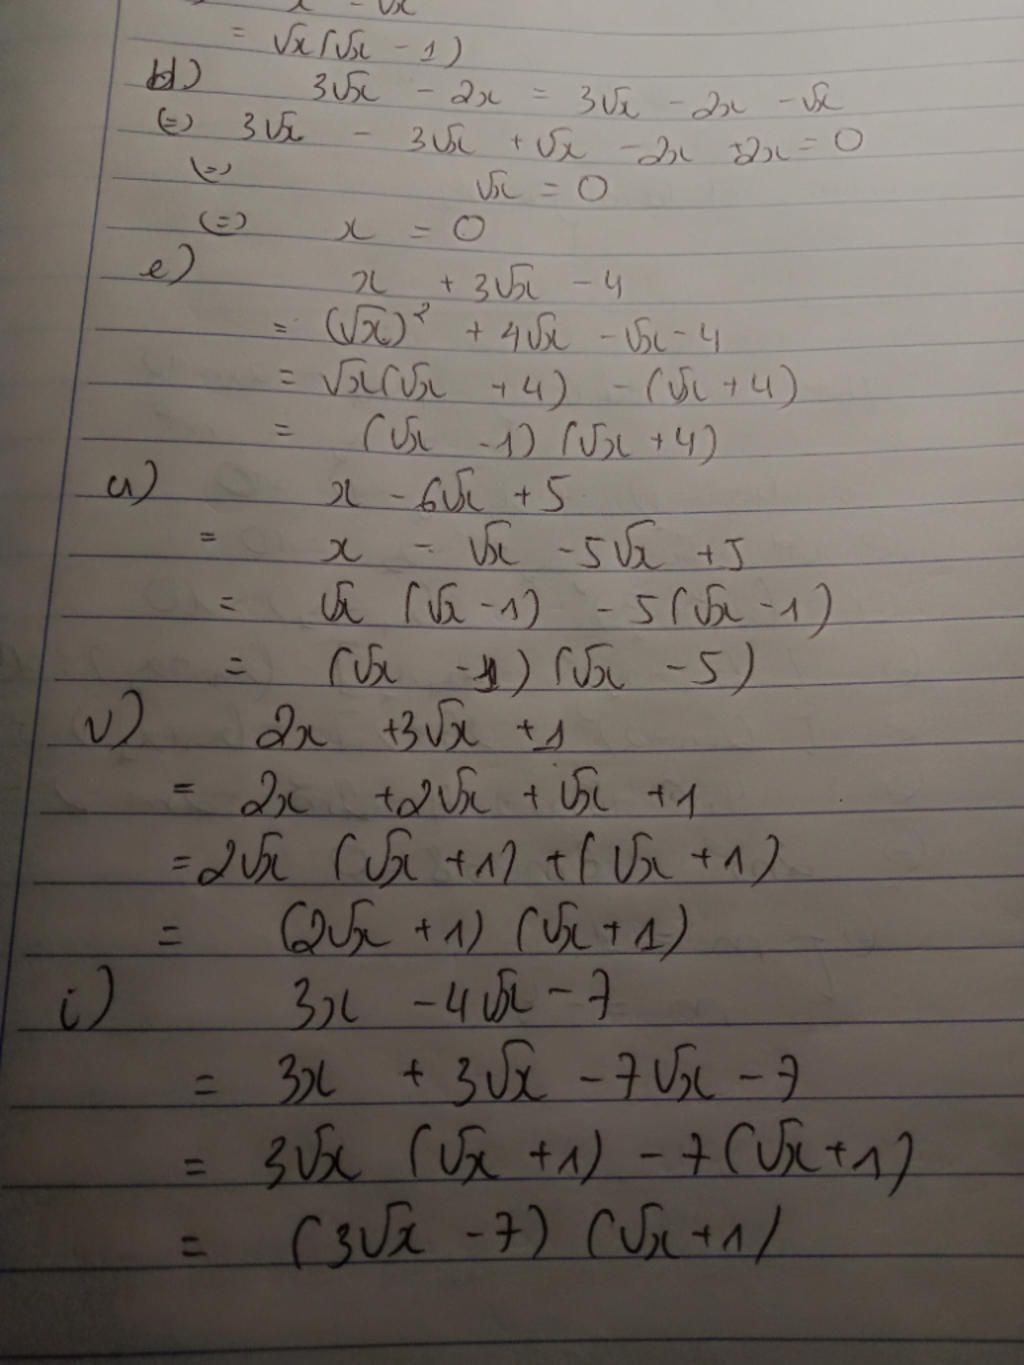 x - √x
= √x(√x - 1)
d) 3√x - 2x = 3√x - 2x - √x
(=) 3√x - 3√x + √x - 2x + 2x = 0
(=) √x = 0
(=) x = 0
e) x + 3√x - 4
= (√x)² + 4√x - √x - 4
= √x(√x + 4) - (√x + 4)
= (√x - 1) (√x + 4)
u) x - 6√x + 5
= x - √x - 5√x + 5
= √x (√x - 1) - 5(√x - 1)
= (√x - 1) (√x - 5)
v) 2x + 3√x + 1
= 2x + 2√x + √x + 1
= 2√x (√x + 1) + (√x + 1)
= (2√x + 1) (√x + 1)
i) 3x - 4√x - 7
= 3x + 3√x - 7√x - 7
= 3√x (√x + 1) - 7(√x + 1)
= (3√x - 7) (√x + 1)